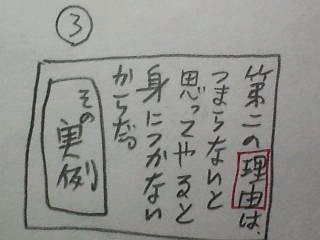 ③
第二の理由は、
つまらないと
思ってやると
身につかない
からだ。
その
実例